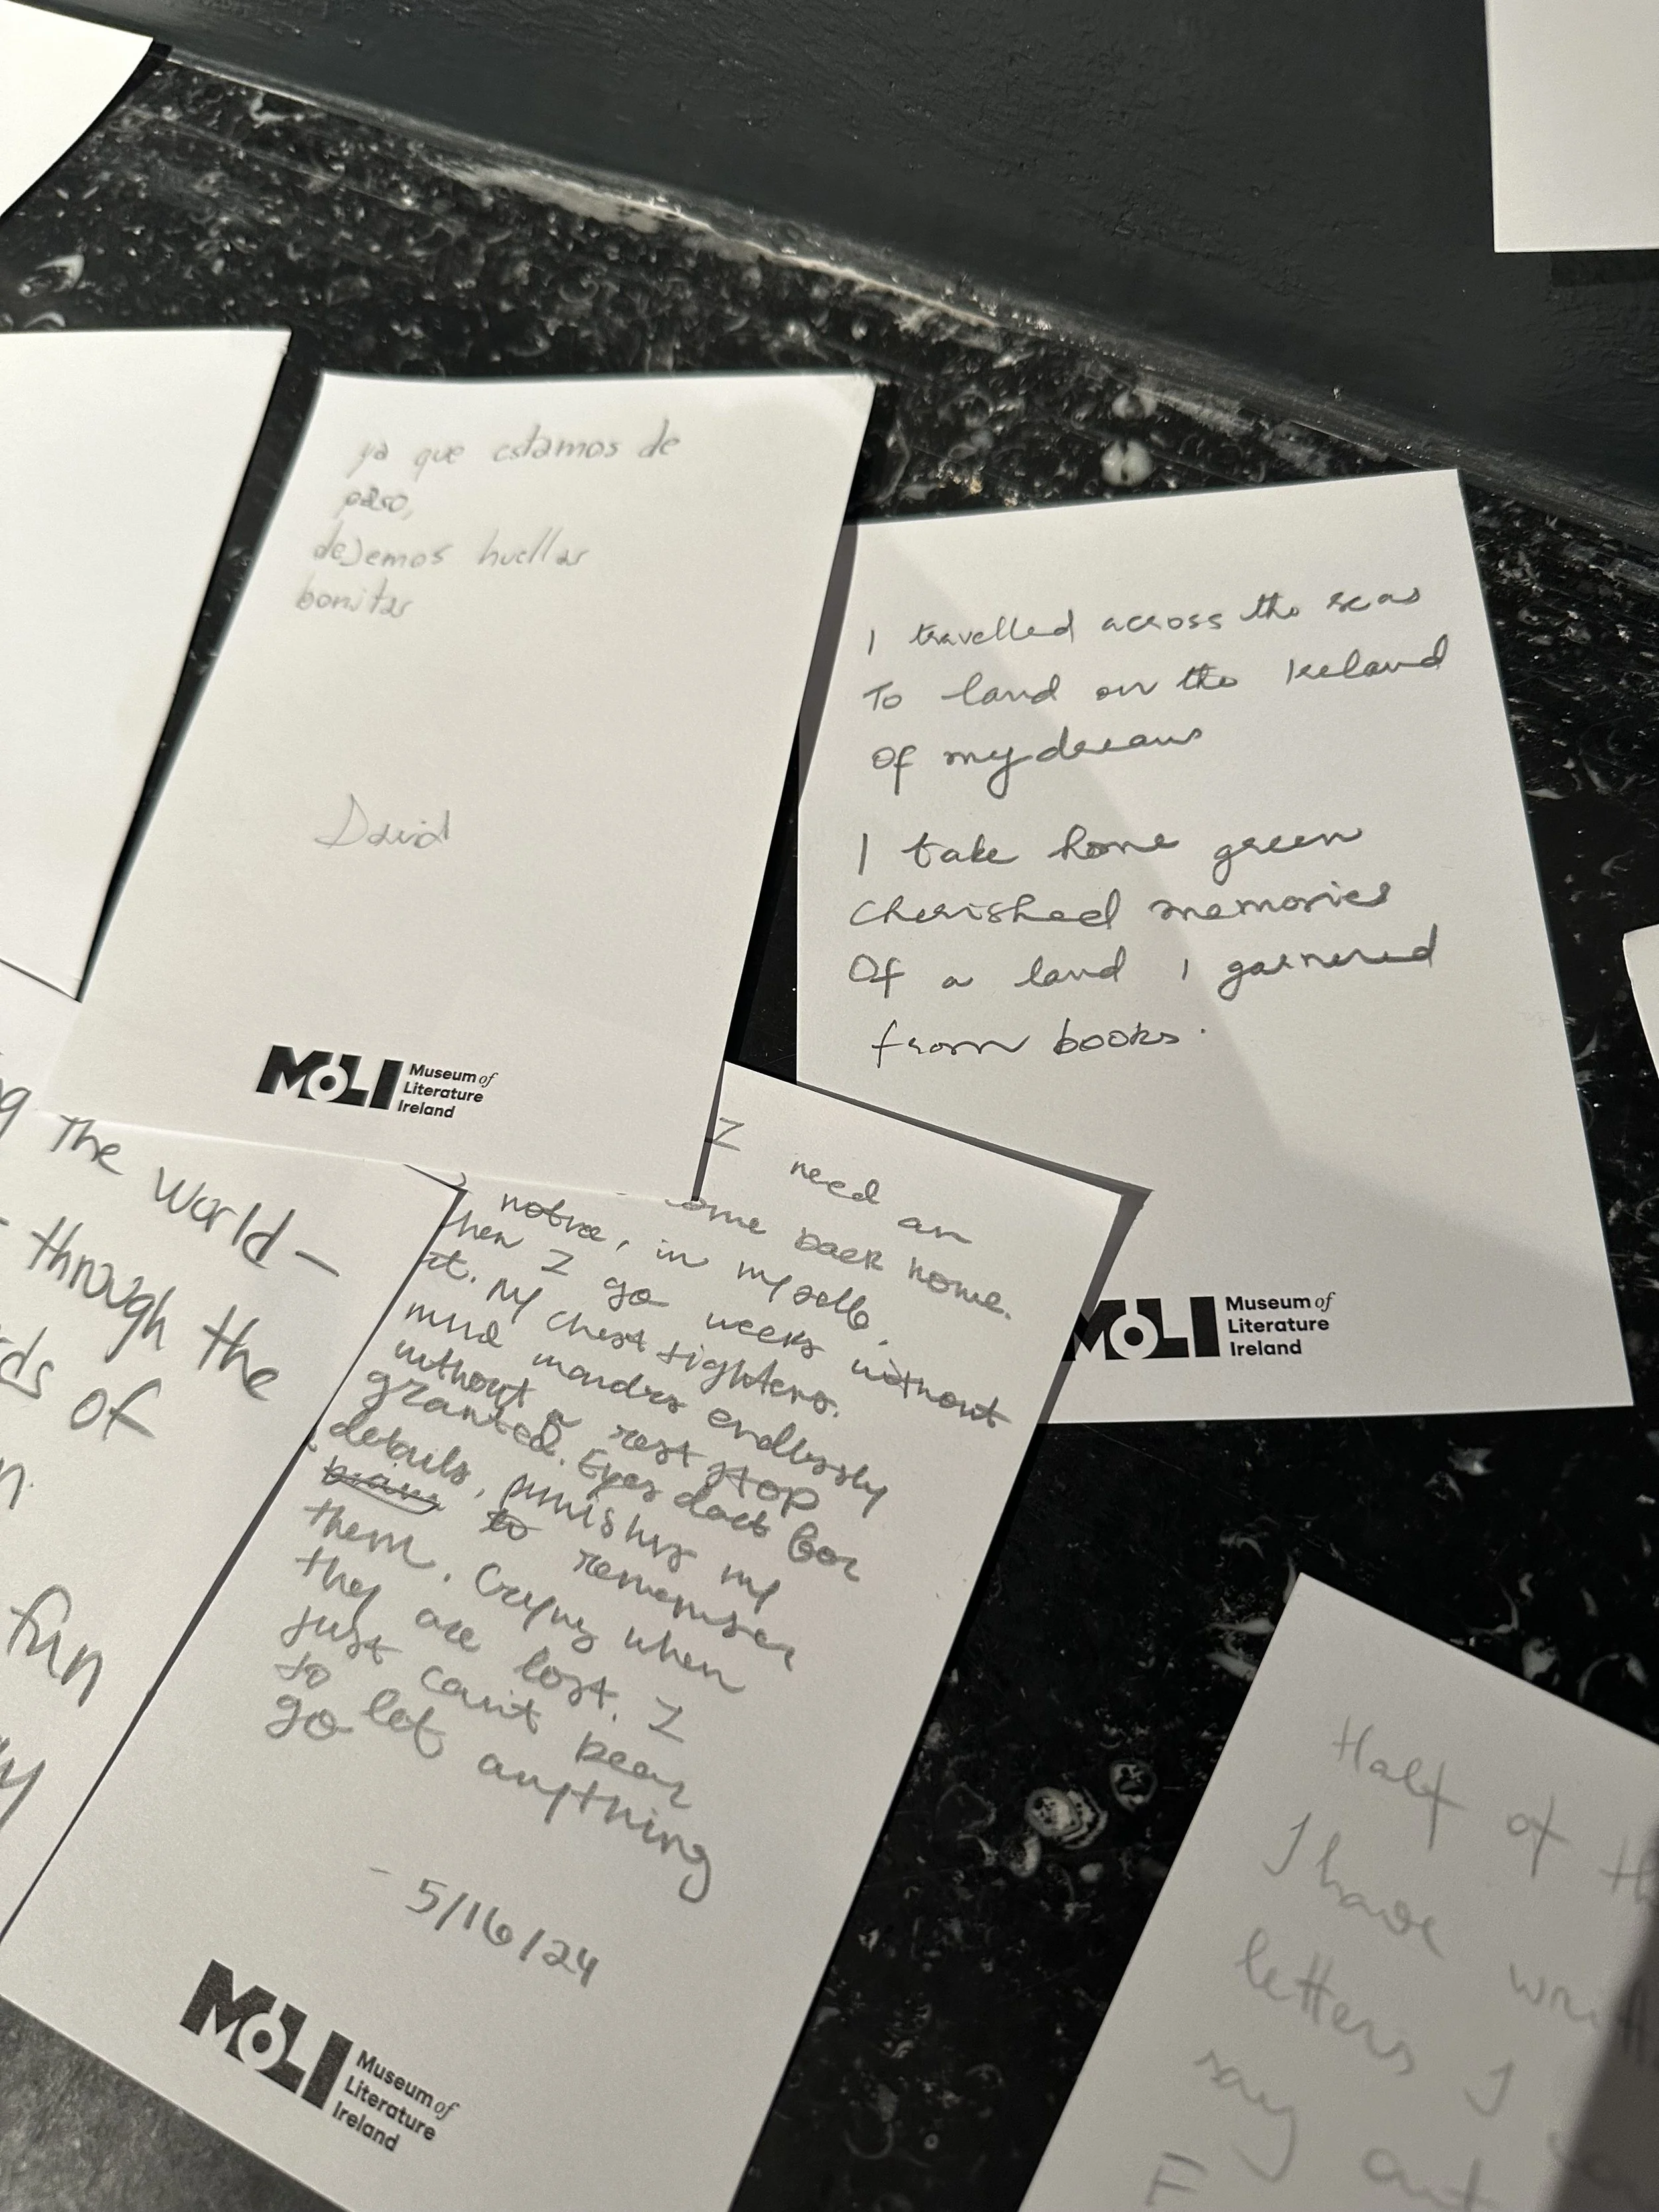 ya que estamos de
paso,
dejemos huellas
bonitas
David
MoLI Museum of
Literature
Ireland
I travelled across the seas
To land on the Ireland
Of my dreams
I take home green
Cherished memories
Of a land I garnered
from books.
MoLI Museum of
Literature
Ireland
The World –
through the
of
fun
I need an
back home.
notice, in myself,
when I go weeks without
it. My chest tightens.
mind wanders endlessly
without a rest stop
granted. Eyes dart for
details, punishing my
to remember
them. Crying when
they are lost. I
just can't bear
to let anything
go
- 5/16/24
MoLI Museum of
Literature
Ireland
Half of
I have
letters I
say